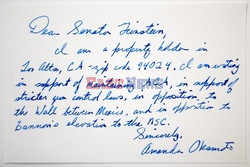 Dear Senator Feinstein,
I am a property holder in
Los Altos, CA zip code 94024. I am writing
in support of maintaining, in support of
stricter gun control laws, in opposition to
the Wall between Mexico, and in opposition to
Bannon's elevation to the NSC.
Sincerely,
Amanda Okamoto